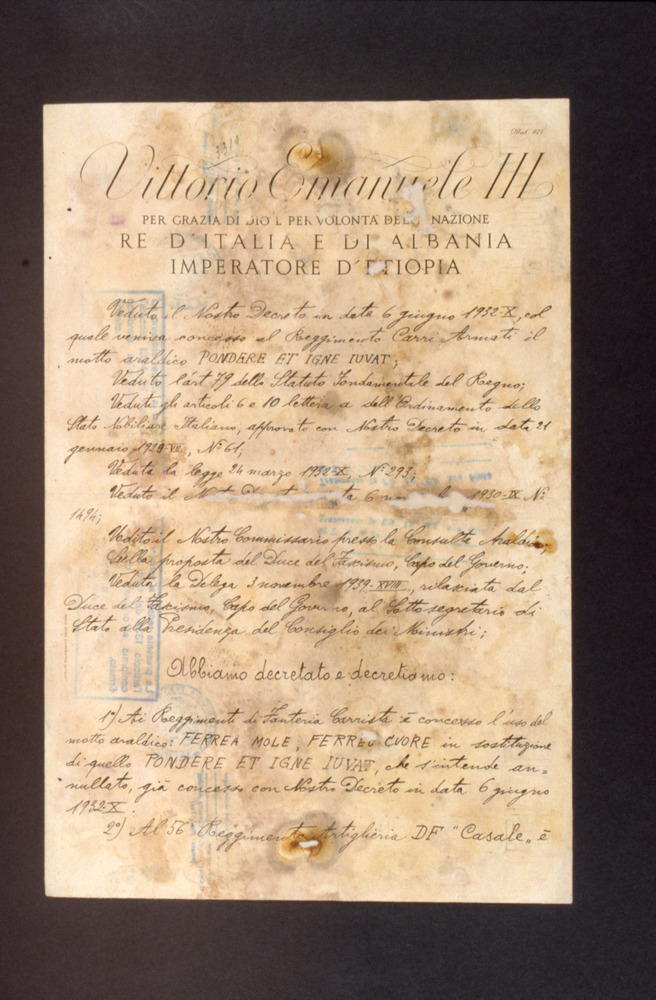 Mod. 827
Vittorio Emanuele III
PER GRAZIA DI DIO E PER VOLONTÀ DELL NAZIONE
RE D'ITALIA E DI ALBANIA
IMPERATORE D'ETIOPIA
Veduto il Nostro Decreto in data 6 giugno 1932-X, col
quale veniva concesso al Reggimento Carri Armati il
motto araldico PONDERE ET IGNE IUVAT;
Veduto l'art 79 dello Statuto Fondamentale del Regno;
Veduti gli articoli 6 e 10 lettera a dell'Ordinamento dello
Stato Nobiliare Italiano, approvato con Nostro Decreto in data 21
gennaio 1929-VII, N° 61;
Veduta la legge 24 marzo 1932-X, N° 293;
Veduto il 6 1930-IX N°
1494;
Udito il Nostro Commissario presso la Consulta Araldica;
Sulla proposta del Duce del Fascismo, Capo del Governo;
Veduta la Delega 3 novembre 1939-XVIII, rilasciata dal
Duce del Fascismo, Capo del Governo, al Sottosegretario di
Stato alla Presidenza del Consiglio dei Ministri;
Abbiamo decretato e decretiamo:
1°) Ai Reggimenti di Fanteria Carrista è concesso l'uso del
motto araldico: FERREA MOLE, FERREO CUORE in sostituzione
di quello PONDERE ET IGNE IUVAT, che s'intende an=
nullato, già concesso con Nostro Decreto in data 6 giugno
1932-X.
2°) Al 56° Reggimento Artiglieria DF "Casale" è